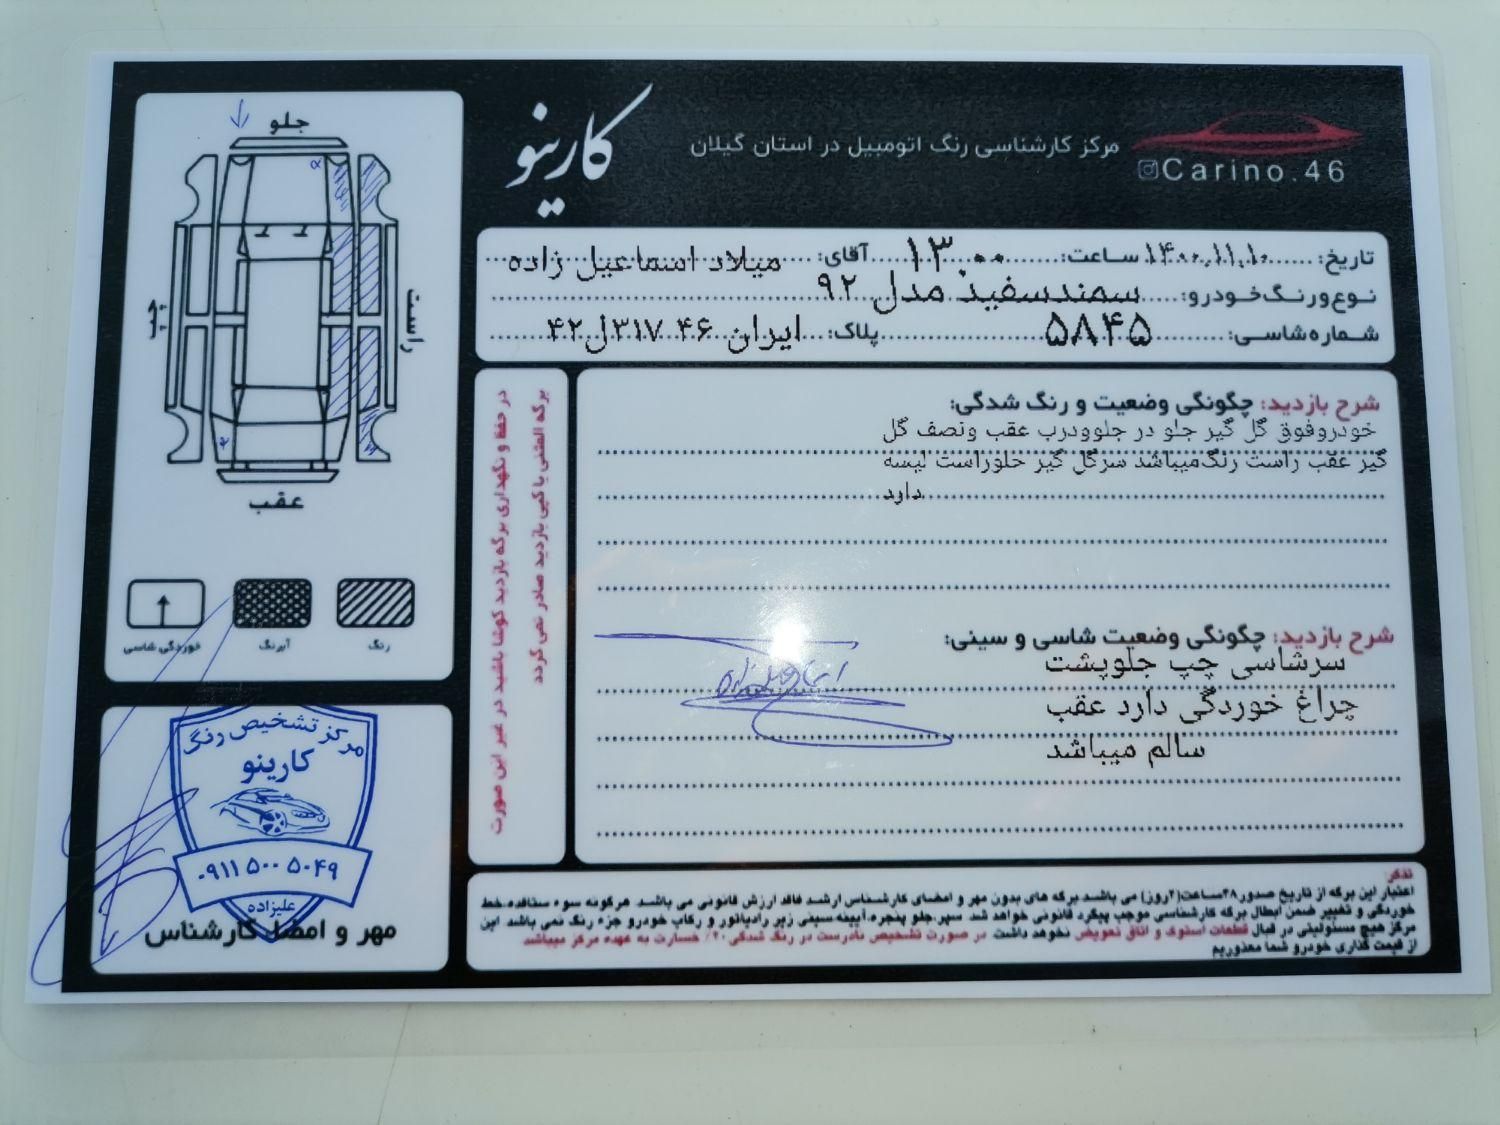 کارینو
مرکز کارشناسی رنگ اتومبیل در استان گیلان
Carino.46
تاریخ: ۱۴۰۰.۱۱.۱۰ ساعت: ۱۳.۰۰ آقای: میلاد اسماعیل زاده
نوع و رنگ خودرو: سمندسفید مدل ۹۲
شماره شاسی: ۵۸۴۵ پلاک: ایران ۴۶ ۳۱۷ل۴۲
شرح بازدید: چگونگی وضعیت و رنگ شدگی:
خودروفوق گل گیر جلو در جلوودرب عقب ونصف گل
گیر عقب راست رنگ میباشد سرگل گیر جلوراست لیسه
دارد
شرح بازدید: چگونگی وضعیت شاسی و سینی:
سرشاسی چپ جلوپشت
چراغ خوردگی دارد عقب
سالم میباشد
در حفظ و نگهداری برگه بازدید کوشا باشید در غیر این صورت
برگه المثنی یا کپی بازدید صادر نمی گردد
جلو
چپ
راست
عقب
رنگ
آبرنگ
خوردگی شاسی
مرکز تشخیص رنگ
کارینو
۰۹۱۱ ۵۰۰ ۵۰۴۹
علیزاده
مهر و امضا کارشناس
تذکر:
اعتبار این برگه از تاریخ صدور ۴۸ساعت(۲روز) می باشد.برگه های بدون مهر و امضای کارشناس ارشد فاقد ارزش قانونی می باشد. هرگونه سوء ستفاده،خط
خوردگی و تغییر ضمن ابطال برگه کارشناسی موجب پیگرد قانونی خواهد شد سپر،جلو پنجره،آیینه سینی زیر رادیاتور و رکاب خودرو جزء رنگ نمی باشد این
مرکز هیچ مسئولیتی در قبال قطعات استوک و اتاق تعویض نخواهد داشت در صورت تشخیص نادرست در رنگ شدگی ۲۰٪ خسارت به عهده مرکز میباشد
از قیمت گذاری خودرو شما معذوریم